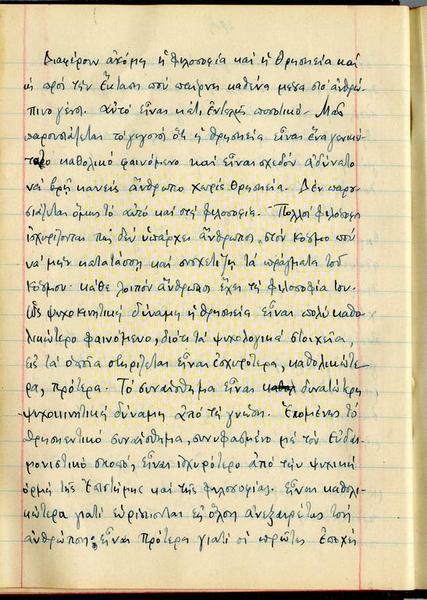 Διαφέρουν ἀκόμη ἡ φιλοσοφία καὶ ἡ θρησκεία καὶ
ὡς πρὸς τὴν ἔκταση ποὺ παίρνει καθένα μέσα στὸ ἀνθρώ-
πινο γένος. Αὐτὸ εἶναι κάτι ἐντελῶς ποσοτικό. Μᾶς
παρουσιάζεται τὸ γεγονὸς ὅτι ἡ θρησκεία εἶναι ἕνα γενικώ-
τατο καθολικὸ φαινόμενο καὶ εἶναι σχεδὸν ἀδύνατο
νὰ βρῆ κανεὶς ἄνθρωπο χωρὶς θρησκεία. Δὲν παρου-
σιάζεται ὅμως τὸ αὐτὸ καὶ στὴ φιλοσοφία. Πολλοὶ φιλόσοφοι
ἰσχυρίζονται πὼς δὲν ὑπάρχει ἄνθρωπος στὸν κόσμο ποὺ
νὰ μὴν κατατάσση καὶ συσχετίζη τὰ πράγματα τοῦ
κόσμου. κάθε λοιπὸν ἄνθρωπος ἔχει τὴ φιλοσοφία του.
Ὡς ψυχοκινητικὴ δύναμη ἡ θρησκεία εἶναι πολὺ καθο-
λικώτερο φαινόμενο, διότι τὰ ψυχολογικὰ στοιχεῖα,
εἰς τὰ ὁποῖα στηρίζεται εἶναι ἰσχυρότερα, καθολικώτε-
ρα, πρότερα. Τὸ συναίσθημα εἶναι δυνατώτερη
ψυχοκινητικὴ δύναμη ἀπὸ τὴ γνώση. Ἑπομένως τὸ
θρησκευτικὸ συναίσθημα, συνυφασμένο μὲ τὸν εὐδαι-
μονιστικὸ σκοπό, εἶναι ἰσχυρότερο ἀπὸ τὴν ψυχικὴ
ὁρμὴ τῆς ἐπιστήμης καὶ τῆς φιλοσοφίας. Εἶναι καθολι-
κώτερα γιατὶ εὑρίσκονται εἰς ὅλους ἀνεξαιρέτως τοὺς
ἀνθρώπους· εἶναι πρότερα γιατὶ οἱ πρῶτες ἐποχὲς